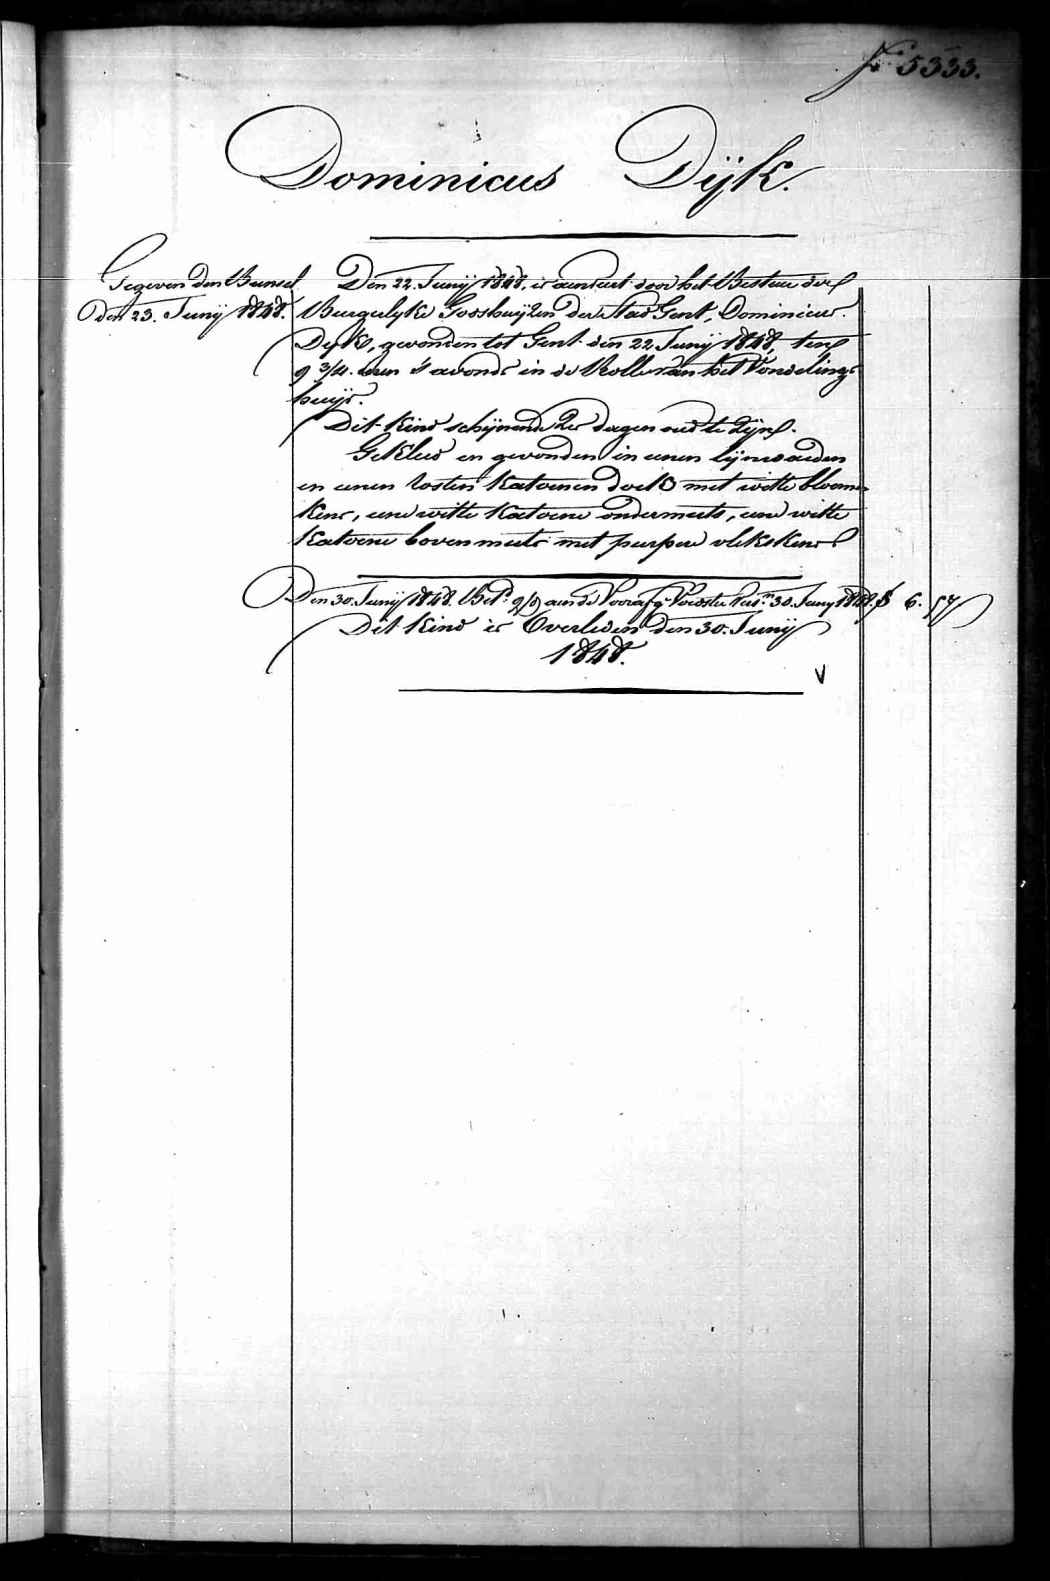 N.° 5333.
Dominicus Dijk.
Gegeven den Bunsel
den 23. Junij 1848.
Den 22. Junij 1848. is aenveert door het Bestuur der
Burgelyke Godshuijzen der Stad Gent, Dominicus
Dijk, gevonden tot Gent den 22 Junij 1848, ten
9 3/4 uren 's avonds in de Rolle van het Vondelings
huijs.
Dit kind schijnende 2 dagen oud te Zijn.
Gekleed en gewonden in eenen lijnwaeden
en eenen rosten katoenen doek met witte bloem-
kens, eene witte katoene ondermuts, eene witte
katoene bovenmuts met purpere vlekskens
Den 30. Junij 1848. Bet.d aen de Voedster 30. Junij 1848. f 6. 57
Dit kind is Overleden den 30. Junij
1848.
V